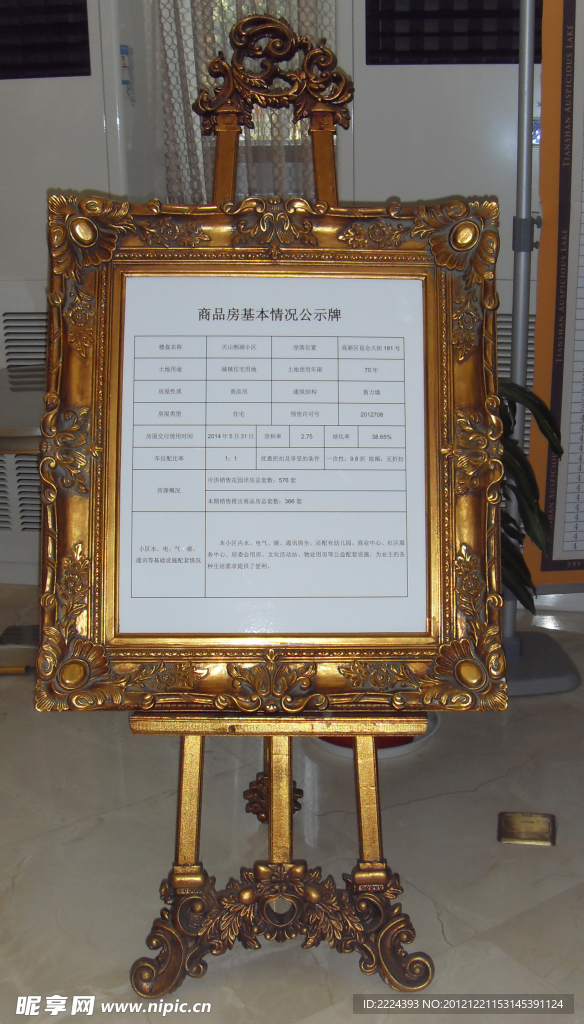 商品房基本情况公示牌
楼盘名称 天山熙湖小区 坐落位置 高新区昆仑大街181号
土地用途 城镇住宅用地 土地使用年限 70年
房屋性质 商品房 建筑结构 剪力墙
房屋类型 住宅 预售许可号 2012708
房屋交付使用时间 2014年5月31日 容积率 2.75 绿化率 38.65%
车位配比率 1:1 优惠折扣及享受的条件 一次性:9.8折 按揭:无折扣
房源概况 可供销售花园洋房总套数:576套
本期销售推出商品房总套数:366套
小区水、电、气、暖、
通讯等基础设施配套情况
本小区内水、电气、暖、通讯齐全;还配有幼儿园、商业中心、社区服
务中心、居委会用房、文化活动站、物业用房等公益配套设施,为业主的各
种生活需求提供了便利。
TIANSHAN AUSPICIOUS LAKE
TIANSHAN AUSPICIOUS LAKE
昵享网 www.nipic.cn
ID:2224393 NO:20121221153145391124